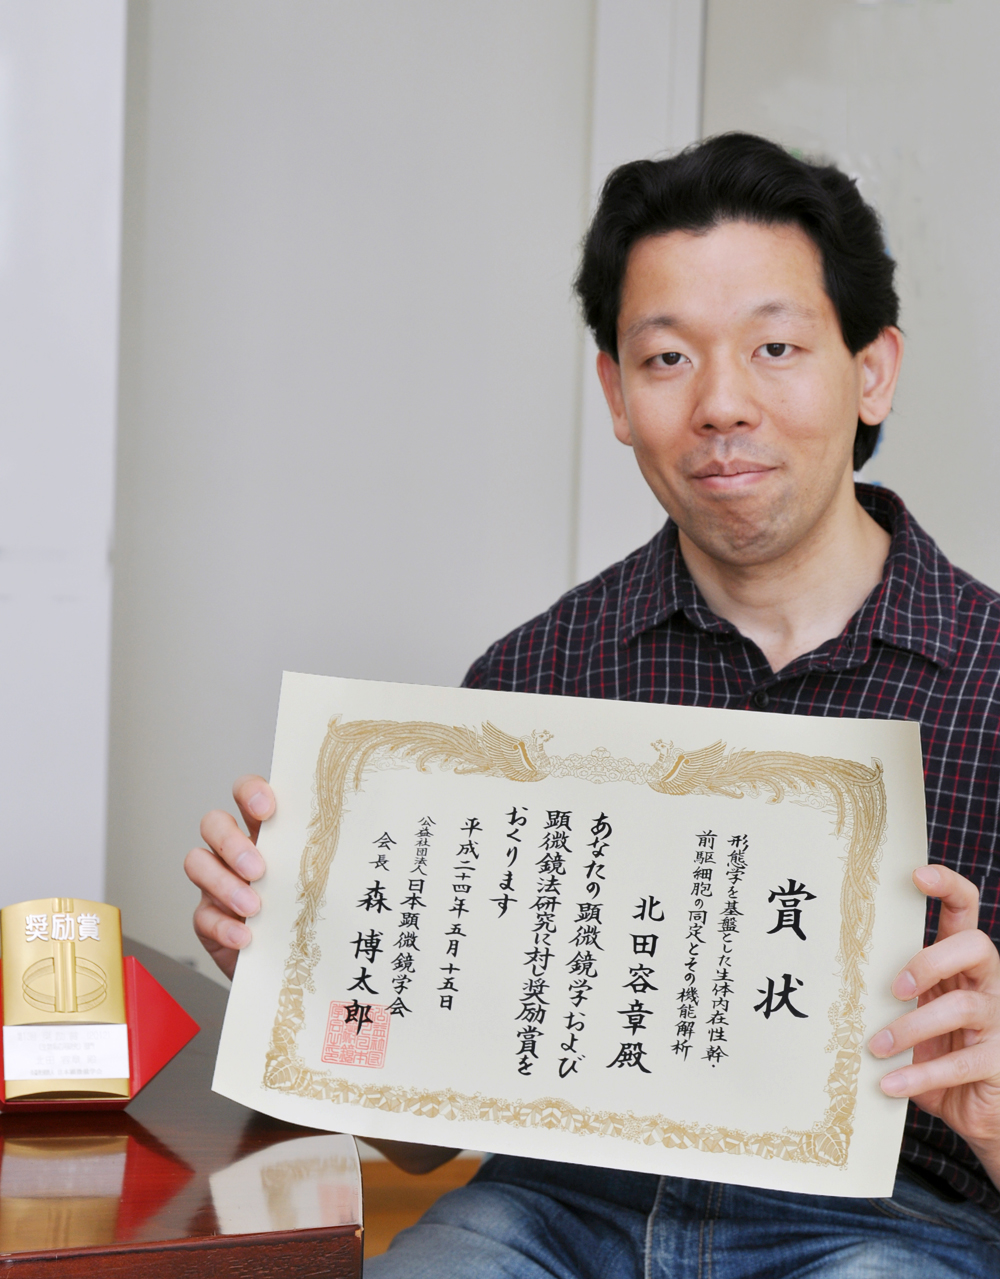 賞状
形態学を基盤とした生体内在性幹・
前駆細胞の同定とその機能解析
北田容章殿
あなたの顕微鏡学および
顕微鏡法研究に対し奨励賞を
おくります
平成二十四年五月十五日
公益社団法人日本顕微鏡学会
会長 森博太郎
奨励賞